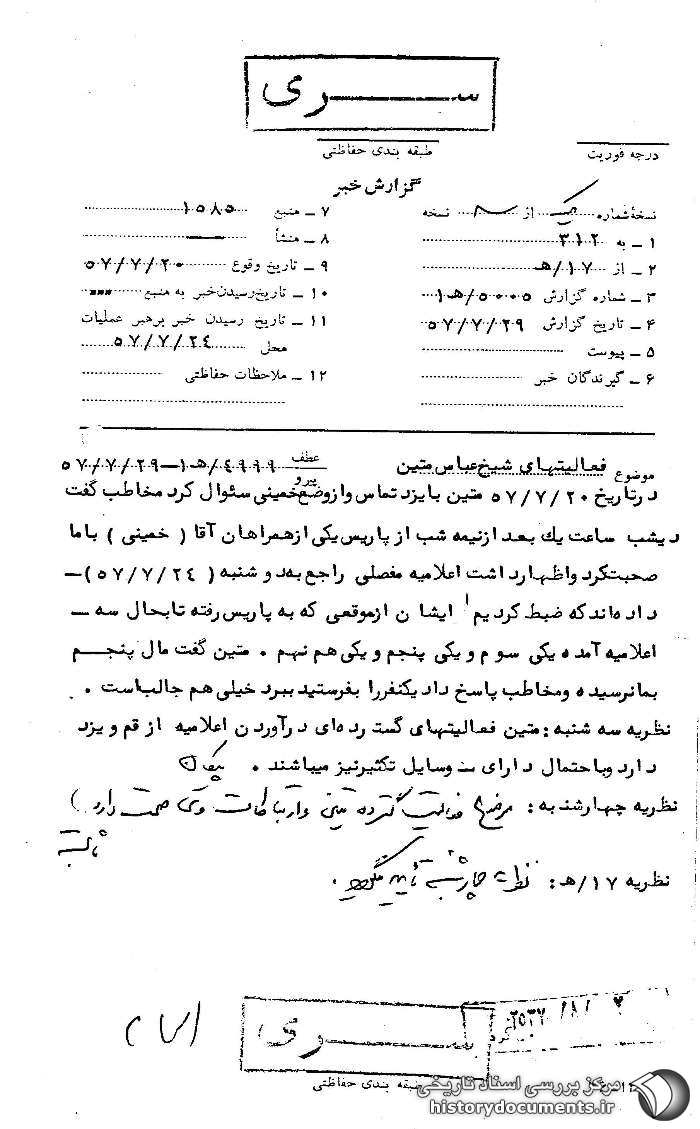 سری
طبقه بندی حفاظتی
درجه فوریت
گزارش خبر
نسخه شماره یک از نسخه
۱ ـ به ۳۱۲
۲ ـ از ۱۷/ه‍
۳ ـ شماره گزارش ۵۰۰۰۵/ه‍۱
۴ ـ تاریخ گزارش ۵۷/۷/۲۹
۵ ـ پیوست
۶ ـ گیرندگان خبر
۷ ـ منبع ۱۵۸۵
۸ ـ منشأ
۹ ـ تاریخ وقوع ۵۷/۷/۲۰
۱۰ ـ تاریخ رسیدن خبر به منبع
۱۱ ـ تاریخ رسیدن خبر برهبر عملیات
محل ۵۷/۷/۲۴
۱۲ ـ ملاحظات حفاظتی
موضوع فعالیتهای شیخ عباس متین عطف پیرو ۴۹۹۹/ه‍۱ـ۵۷/۷/۲۹
درتاریخ ۵۷/۷/۲۰ متین بایزد تماس وازوضع خمینی سئوال کرد مخاطب گفت
دیشب ساعت یك بعد ازنیمه شب از پاریس یکی ازهمراهان آقا ( خمینی ) باما
صحبت کرد واظهارداشت اعلامیه مفصلی راجع بهد و شنبه ( ۵۷/۷/۲۴)ـ
داده اند که ضبط کردیم ایشان ازموقعی که به پاریس رفته تابحال سه ـ
اعلامیه آمده یکی سوم ویکی پنجم ویکی هم نهم . متین گفت مال پنجم
بمانرسیده ومخاطب پاسخ داد یکنفررا بفرستید ببرد خیلی هم جالب است .
نظریه سه شنبه : متین فعالیتهای گسترده ای درآوردن اعلامیه از قم و یزد
دارد وباحتمال دارای وسایل تکثیرنیز میباشند .
نظریه چهارشنبه : موضوع فعالیت گسترده متین وارتباطات وی صحت دارد
نظریه ۱۷/ه‍ : نظریه چهارشنبه تأیید میگردد .
۲۵۳۷/۸/۲
سری
طبقه بندی حفاظتی
مرکز بررسی اسناد تاریخی
historydocuments.ir